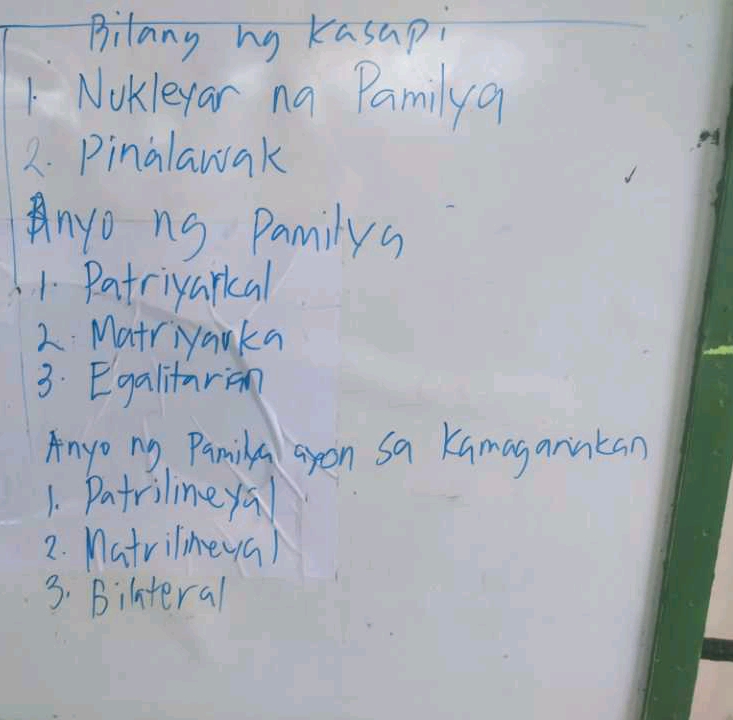 Bilang ng Kasapi
1. Nukleyar na Pamilya
2. Pinalawak
Anyo ng Pamilya
1. Patriyarkal
2. Matriyarka
3. Egalitarian
Anyo ng Pamilya ayon sa Kamaganakan
1. Patrilineyal
2. Matrilineyal
3. Bilateral